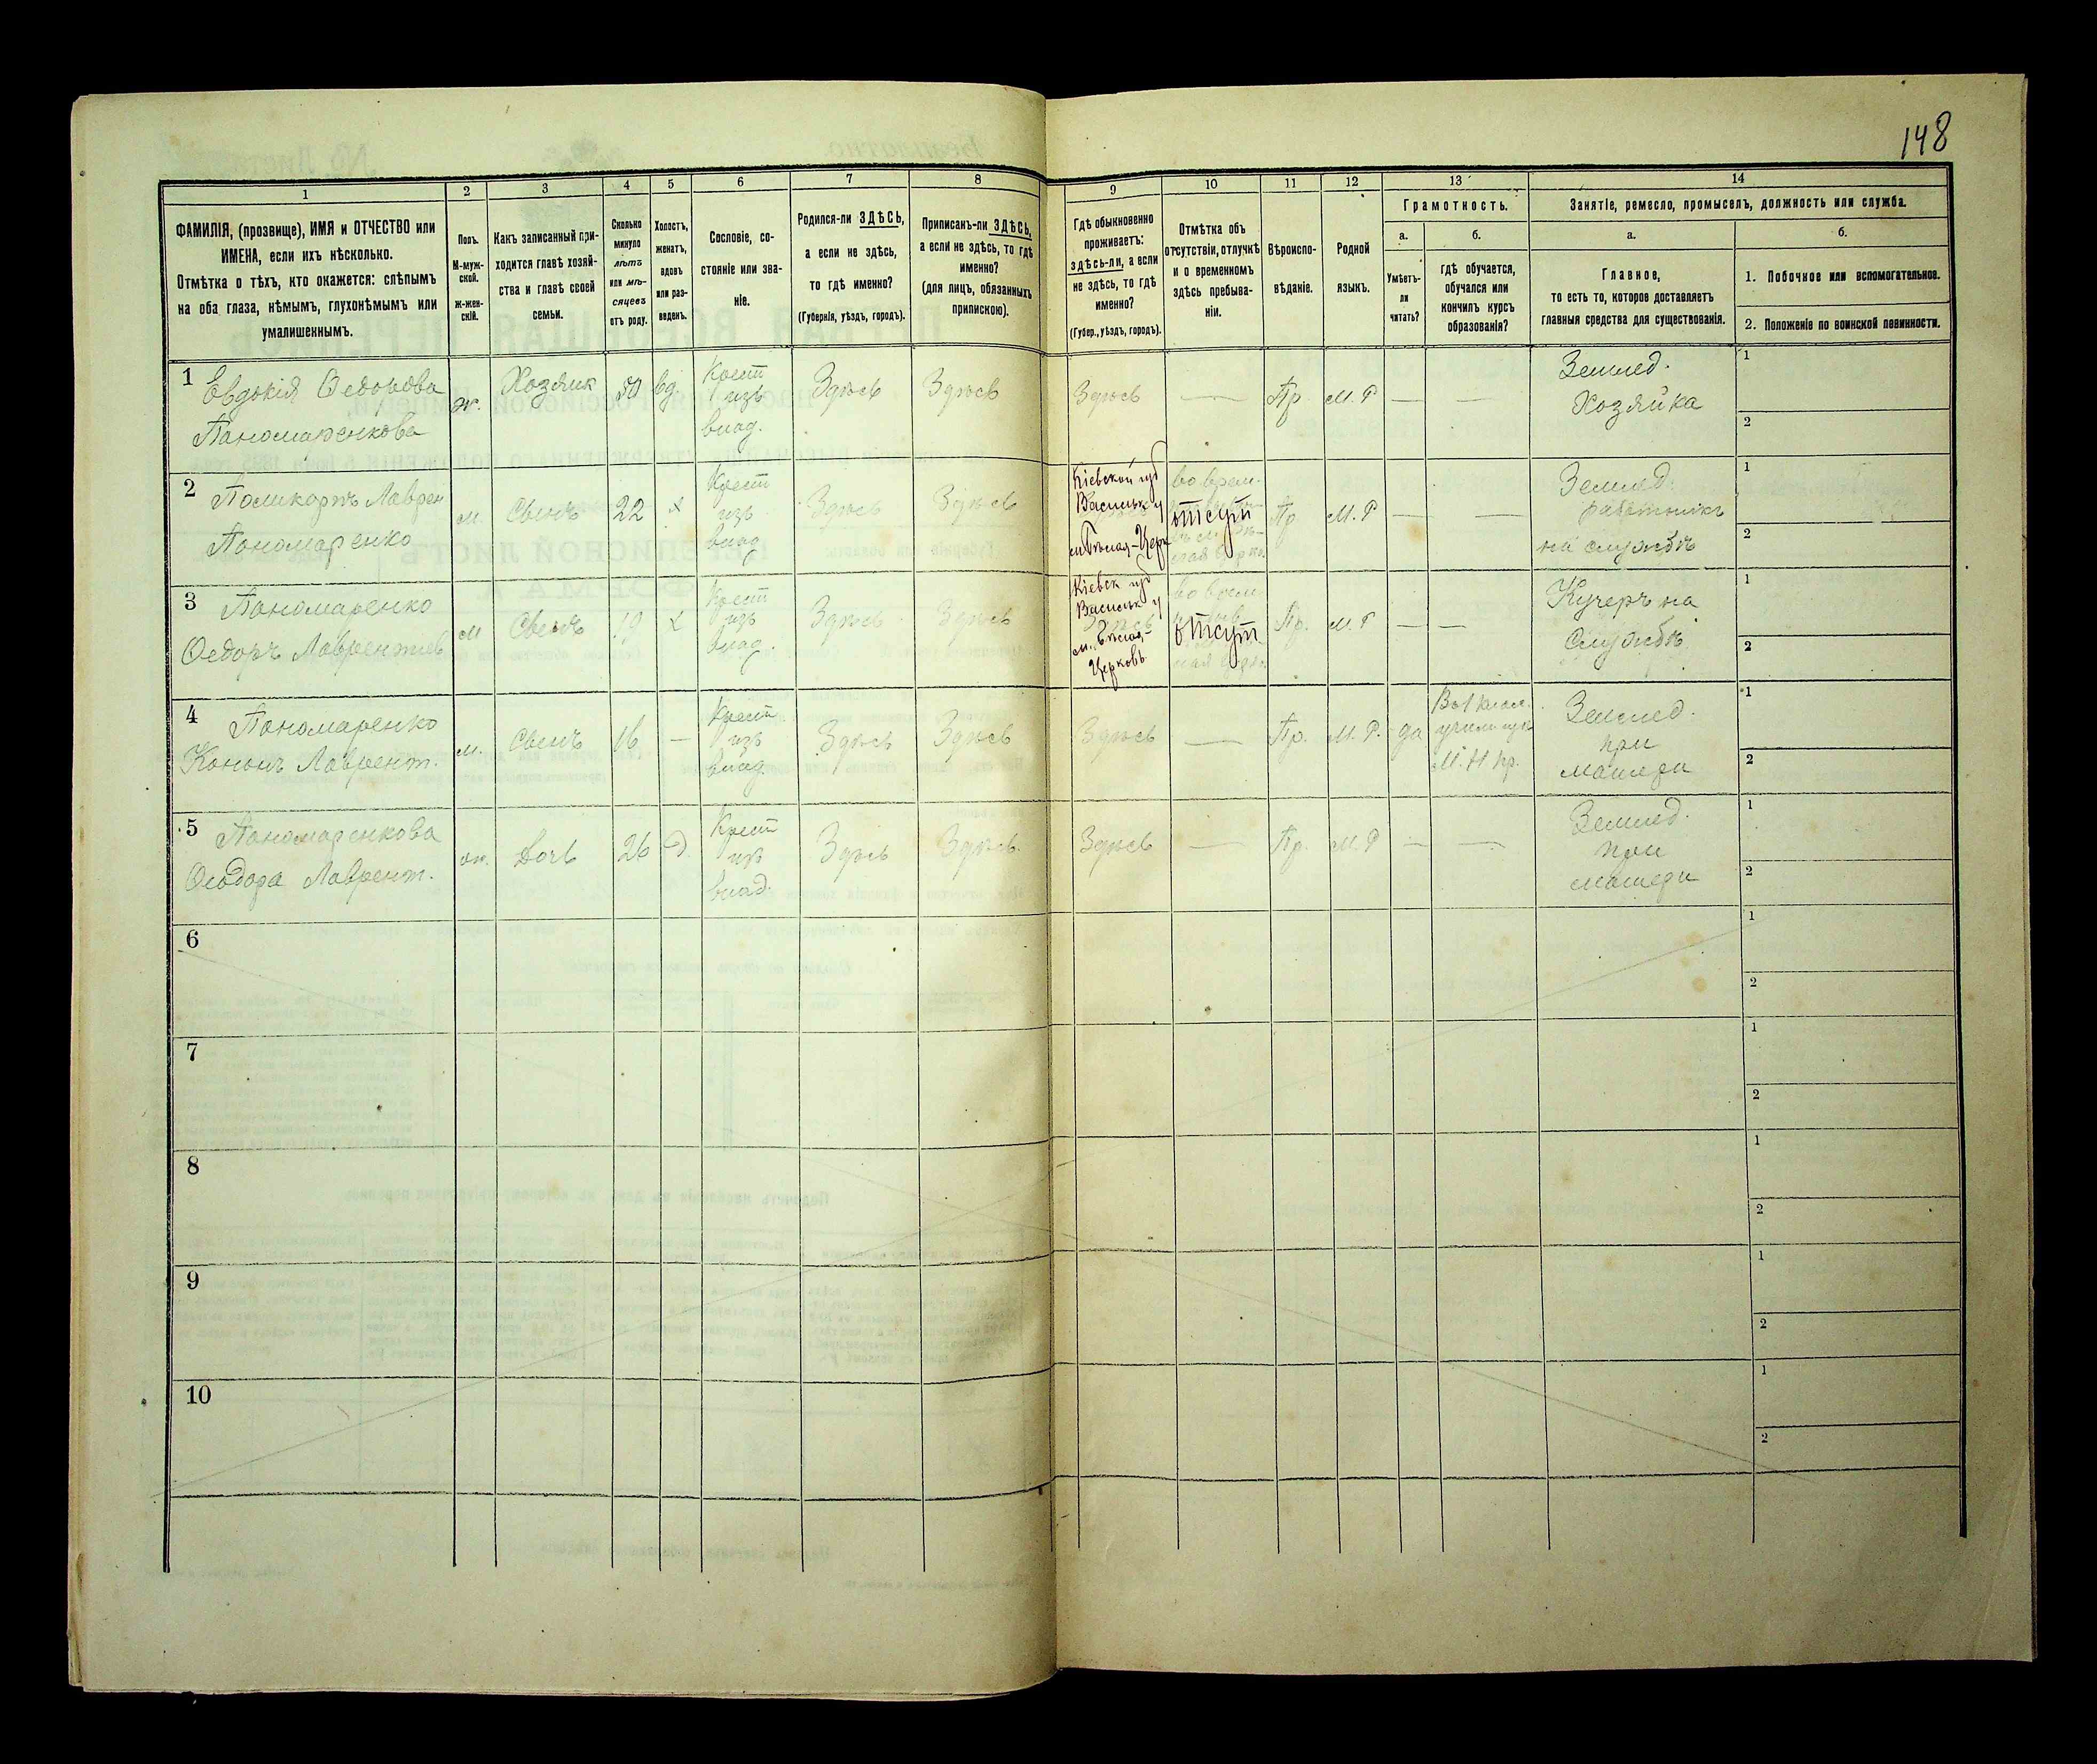 148
1
2
3
4
5
6
7
8
9
10
11
12
13
14
ФАМИЛІЯ, (прозвище), ИМЯ и ОТЧЕСТВО или
ИМЕНА, если ихъ нѣсколько.
Отмѣтка о тѣхъ, кто окажется: слѣпымъ
на оба глаза, нѣмымъ, глухонѣмымъ или
умалишеннымъ.
Полъ.
М-муж-
ской.
Ж-жен-
скій.
Какъ записанный при-
ходится главѣ хозяй-
ства и главѣ своей
семьи.
Сколько
минуло
лѣтъ
или мѣ-
сяцевъ
отъ роду.
Холостъ,
женатъ,
вдовъ
или раз-
веденъ.
Сословіе, со-
стояніе или зва-
ніе.
Родился-ли ЗДѢСЬ,
а если не здѣсь,
то гдѣ именно?
(Губернія, уѣздъ, городъ).
Приписанъ-ли ЗДѢСЬ,
а если не здѣсь, то гдѣ
именно?
(для лицъ, обязанныхъ
припискою).
Гдѣ обыкновенно
проживаетъ:
здѣсь-ли, а если
не здѣсь, то гдѣ
именно?
(Губер., уѣздъ, городъ).
Отмѣтка объ
отсутствіи, отлучкѣ
и о временномъ
здѣсь пребыва-
ніи.
Вѣроиспо-
вѣданіе.
Родной
языкъ.
Грамотность.
а.
Умѣетъ-
ли
читать?
б.
гдѣ обучается,
обучался или
кончилъ курсъ
образованія?
Занятіе, ремесло, промыселъ, должность или служба.
а.
Главное,
то есть то, которое доставляетъ
главныя средства для существованія.
б.
1. Побочное или вспомогательное.
2. Положеніе по воинской повинности.
1
Евдокія Ѳедорова
Панамаренкова
ж.
Хозяик
50
вд
Крест
изъ
влад.
Здѣсь
Здѣсь
Здѣсь
—
Пр
М.Р
—
—
Землед.
Хозяйка
1
2
2
Поликарпъ Лаврен
Пономаренко
м.
Сынъ
22
х
Крест
изъ
влад
Здѣсь
Здѣсь
Кіевской губ
Васильк у
м Бѣлая-Церк
во врем.
отсут
Пр
М.Р
—
—
Землед.
работникъ
на службѣ
1
2
3
Пономаренко
Ѳедоръ Лаврентьев
м
Сынъ
19
х
Крест
изъ
влад.
Здѣсь
Здѣсь
Кіевск губ
Васильк у
м. Бѣлая-
Церковь
во врем
отсут
Пр.
М.Р
—
—
Кучеръ на
службѣ
1
2
4
Пономаренко
Кононъ Лаврент.
м.
Сынъ
16
—
Крест
изъ
влад.
Здѣсь
Здѣсь
Здѣсь
—
Пр.
М.Р.
да
Въ 1 класн.
училищѣ
М.Н.пр.
Землед.
при
матери
1
2
5
Пономаренкова
Ѳеодора Лаврент.
ж.
Дочь
26
Д.
Крест
изъ
влад.
Здѣсь
Здѣсь.
Здѣсь
—
Пр.
М.Р
—
—
Землед.
при
матери
1
2
6
1
2
7
1
2
8
1
2
9
1
2
10
1
2